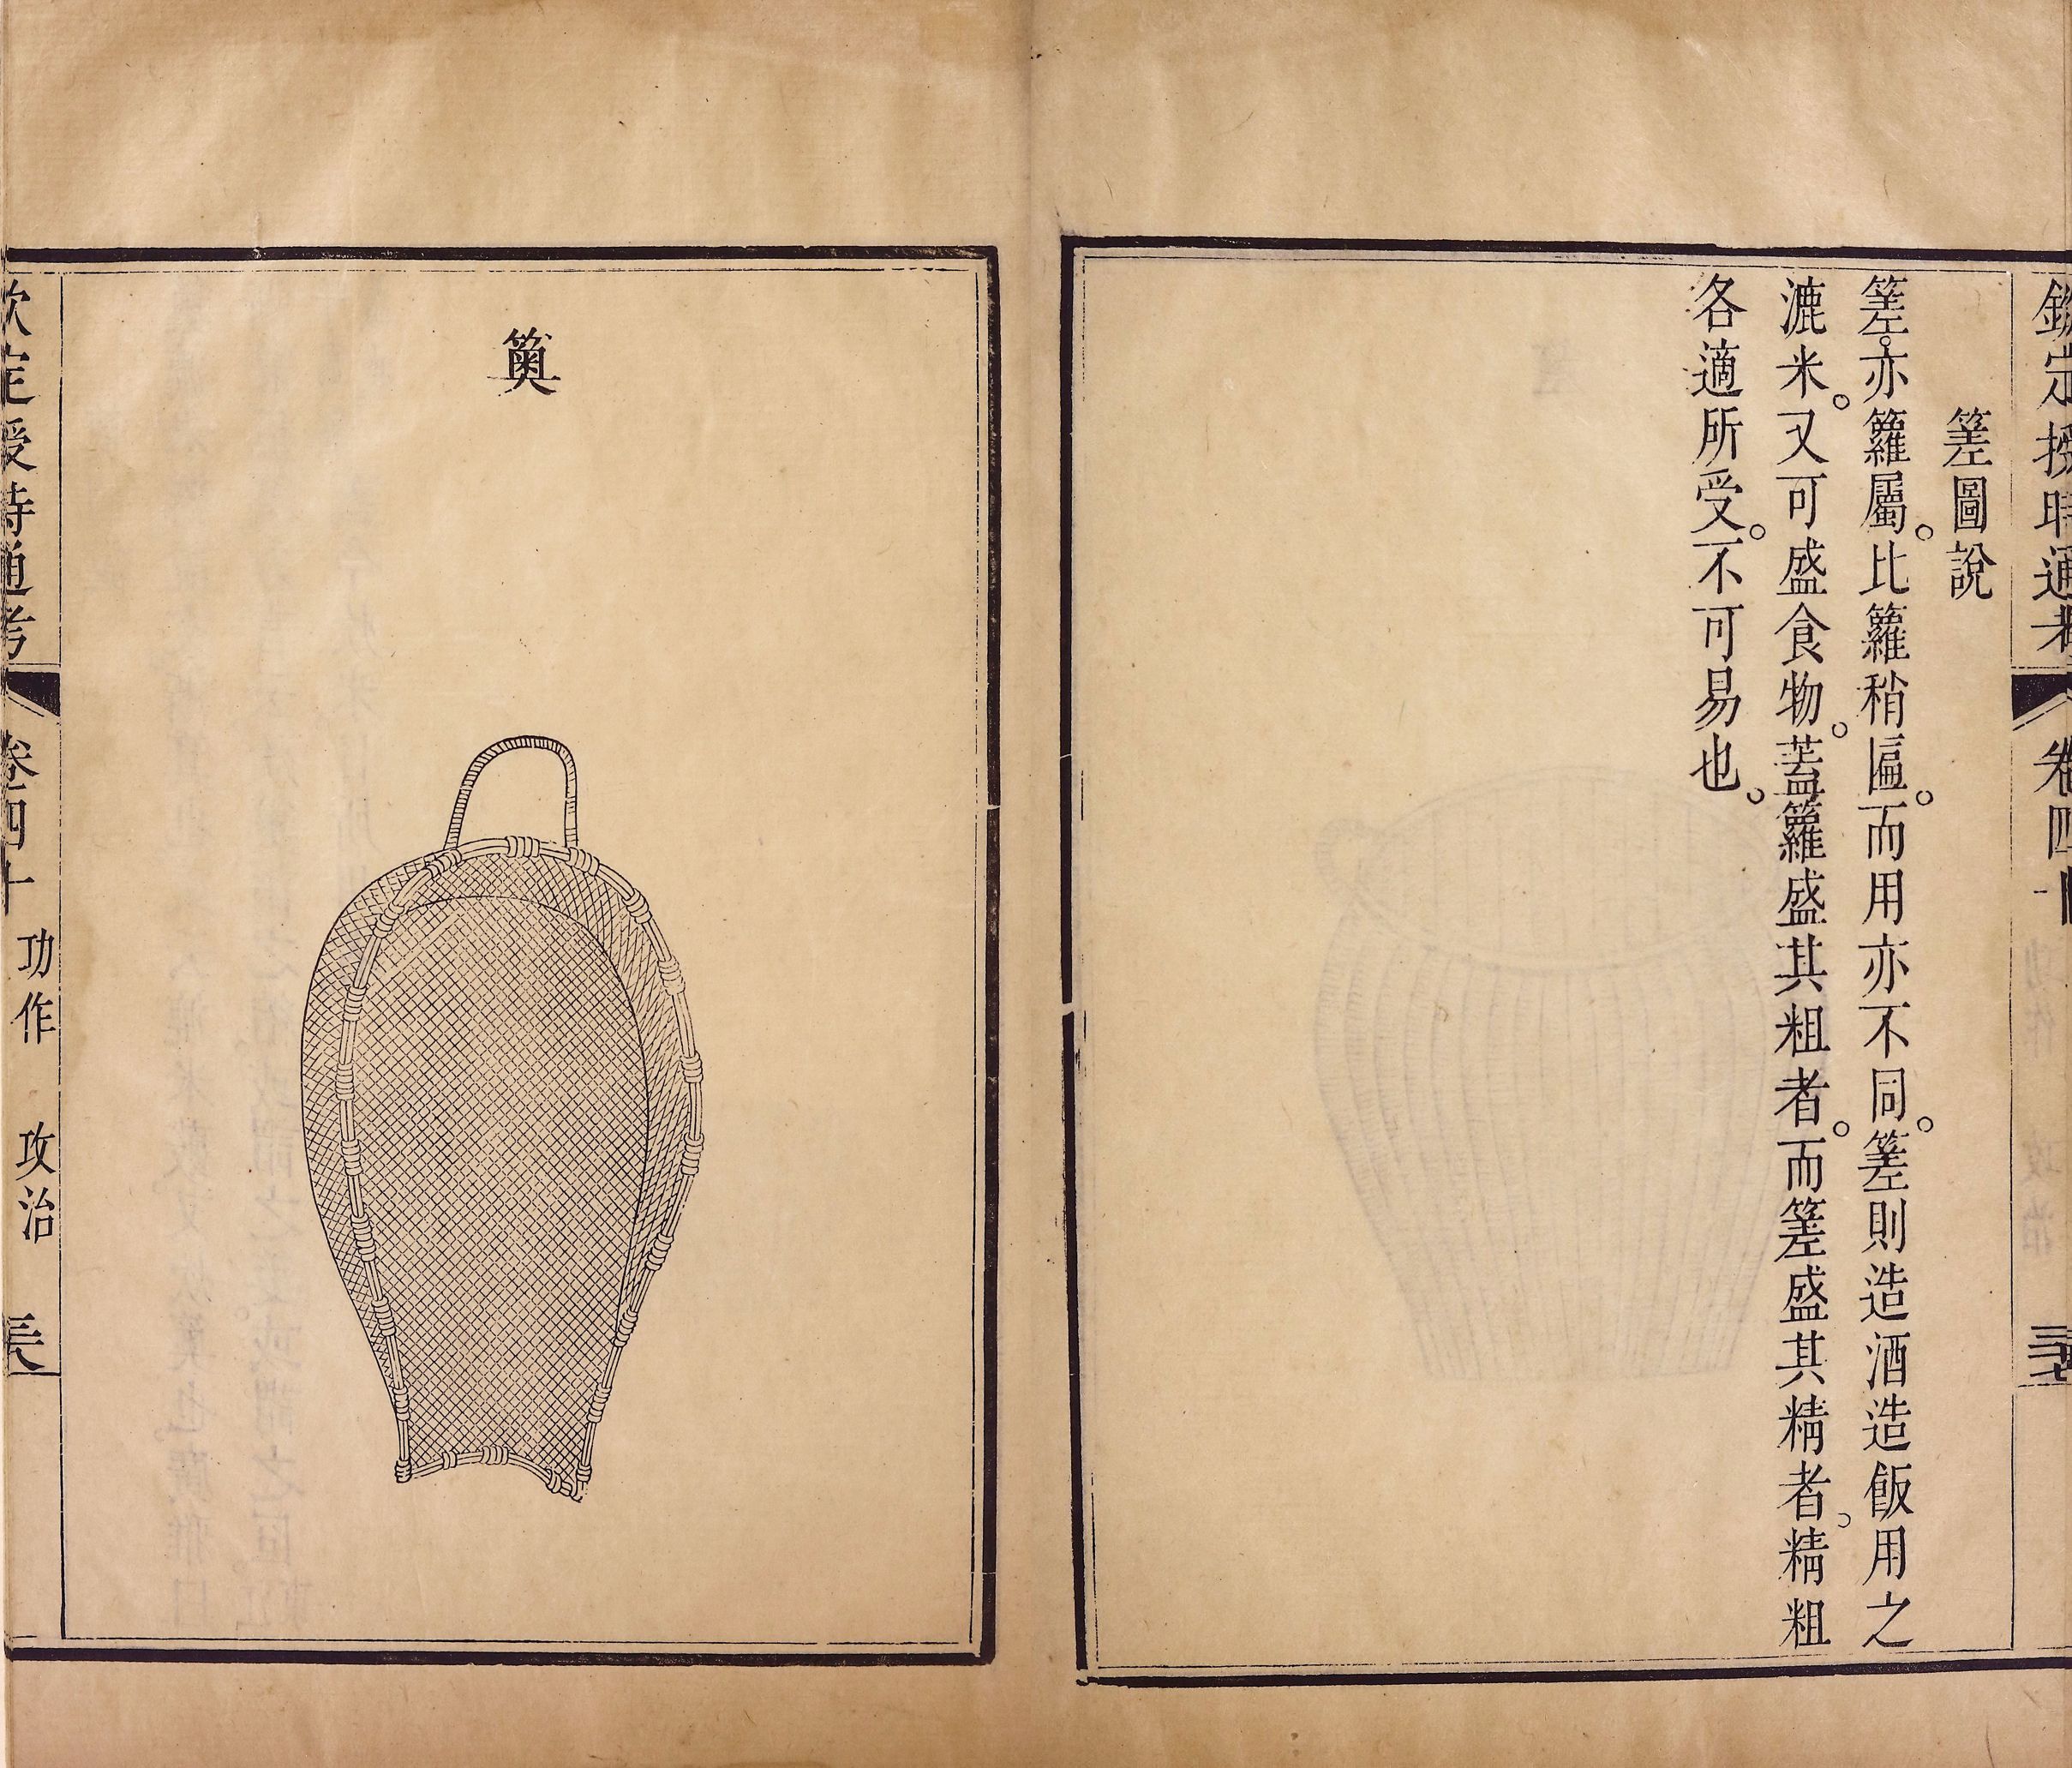 欽定授時通考
卷四十
𥰭圖說
𥰭。亦籮屬。比籮稍匾。而用亦不同。𥰭則造酒造飯用之
漉米。又可盛食物。蓋籮盛其粗者。而𥰭盛其精者。精粗
各適所受。不可易也。
䉛
欽定授時通考
卷四十
功作
攻治